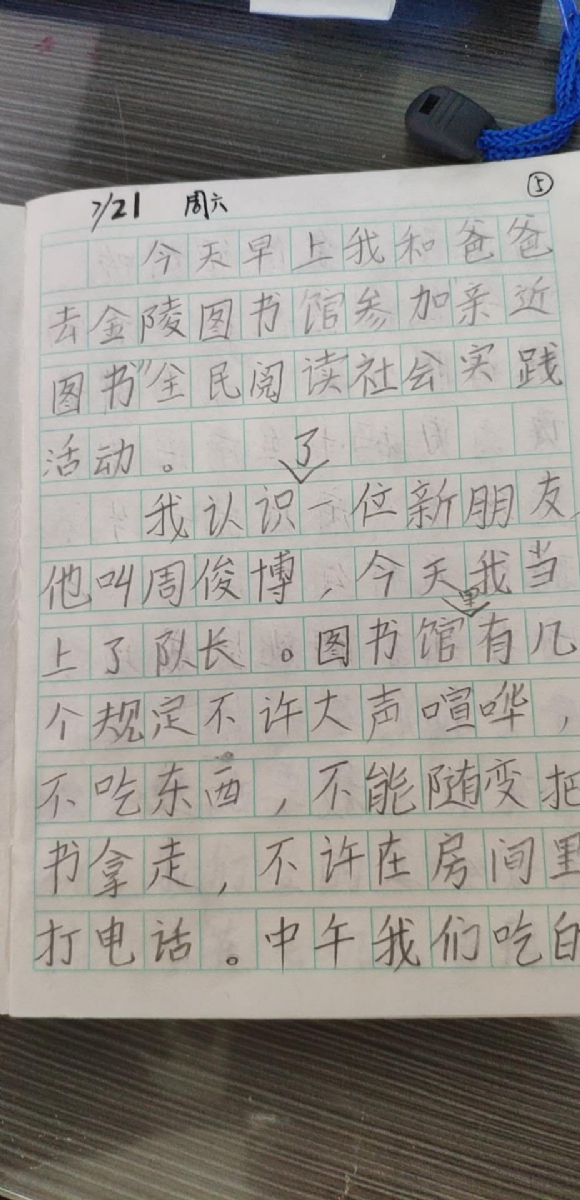 7/21 周六 ⑤
今天早上我和爸爸
去金陵图书馆参加"亲近
图书"全民阅读社会实践
活动。
我认识了一位新朋友
他叫周俊博，今天我当
上了队长。图书馆里有几
个规定不许大声喧哗，
不吃东西，不能随变把
书拿走，不许在房间里
打电话。中午我们吃的